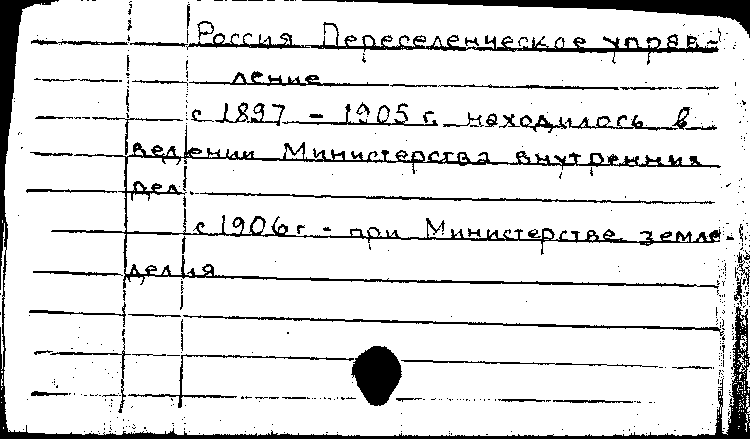 Россия Переселенческое управ-
ление
с 1897 - 1905 г. находилось в
ведении Министерства внутренних
дел
с 1906 г - при Министерстве земле-
делия